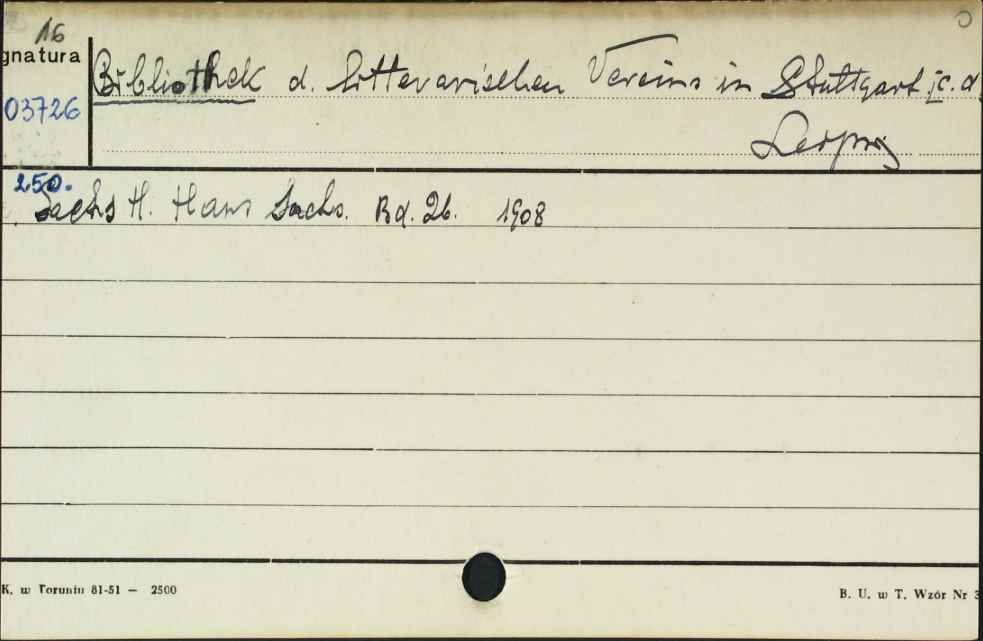 16
gnatura
03726
Bibliothek d. litterarischen Vereins in Stuttgart [c. d.
Leipzig
250.
Sachs H. Hans Sachs. Bd. 26. 1908
K. w Toruniu 81-51 — 2500
B. U. w T. Wzór Nr 3